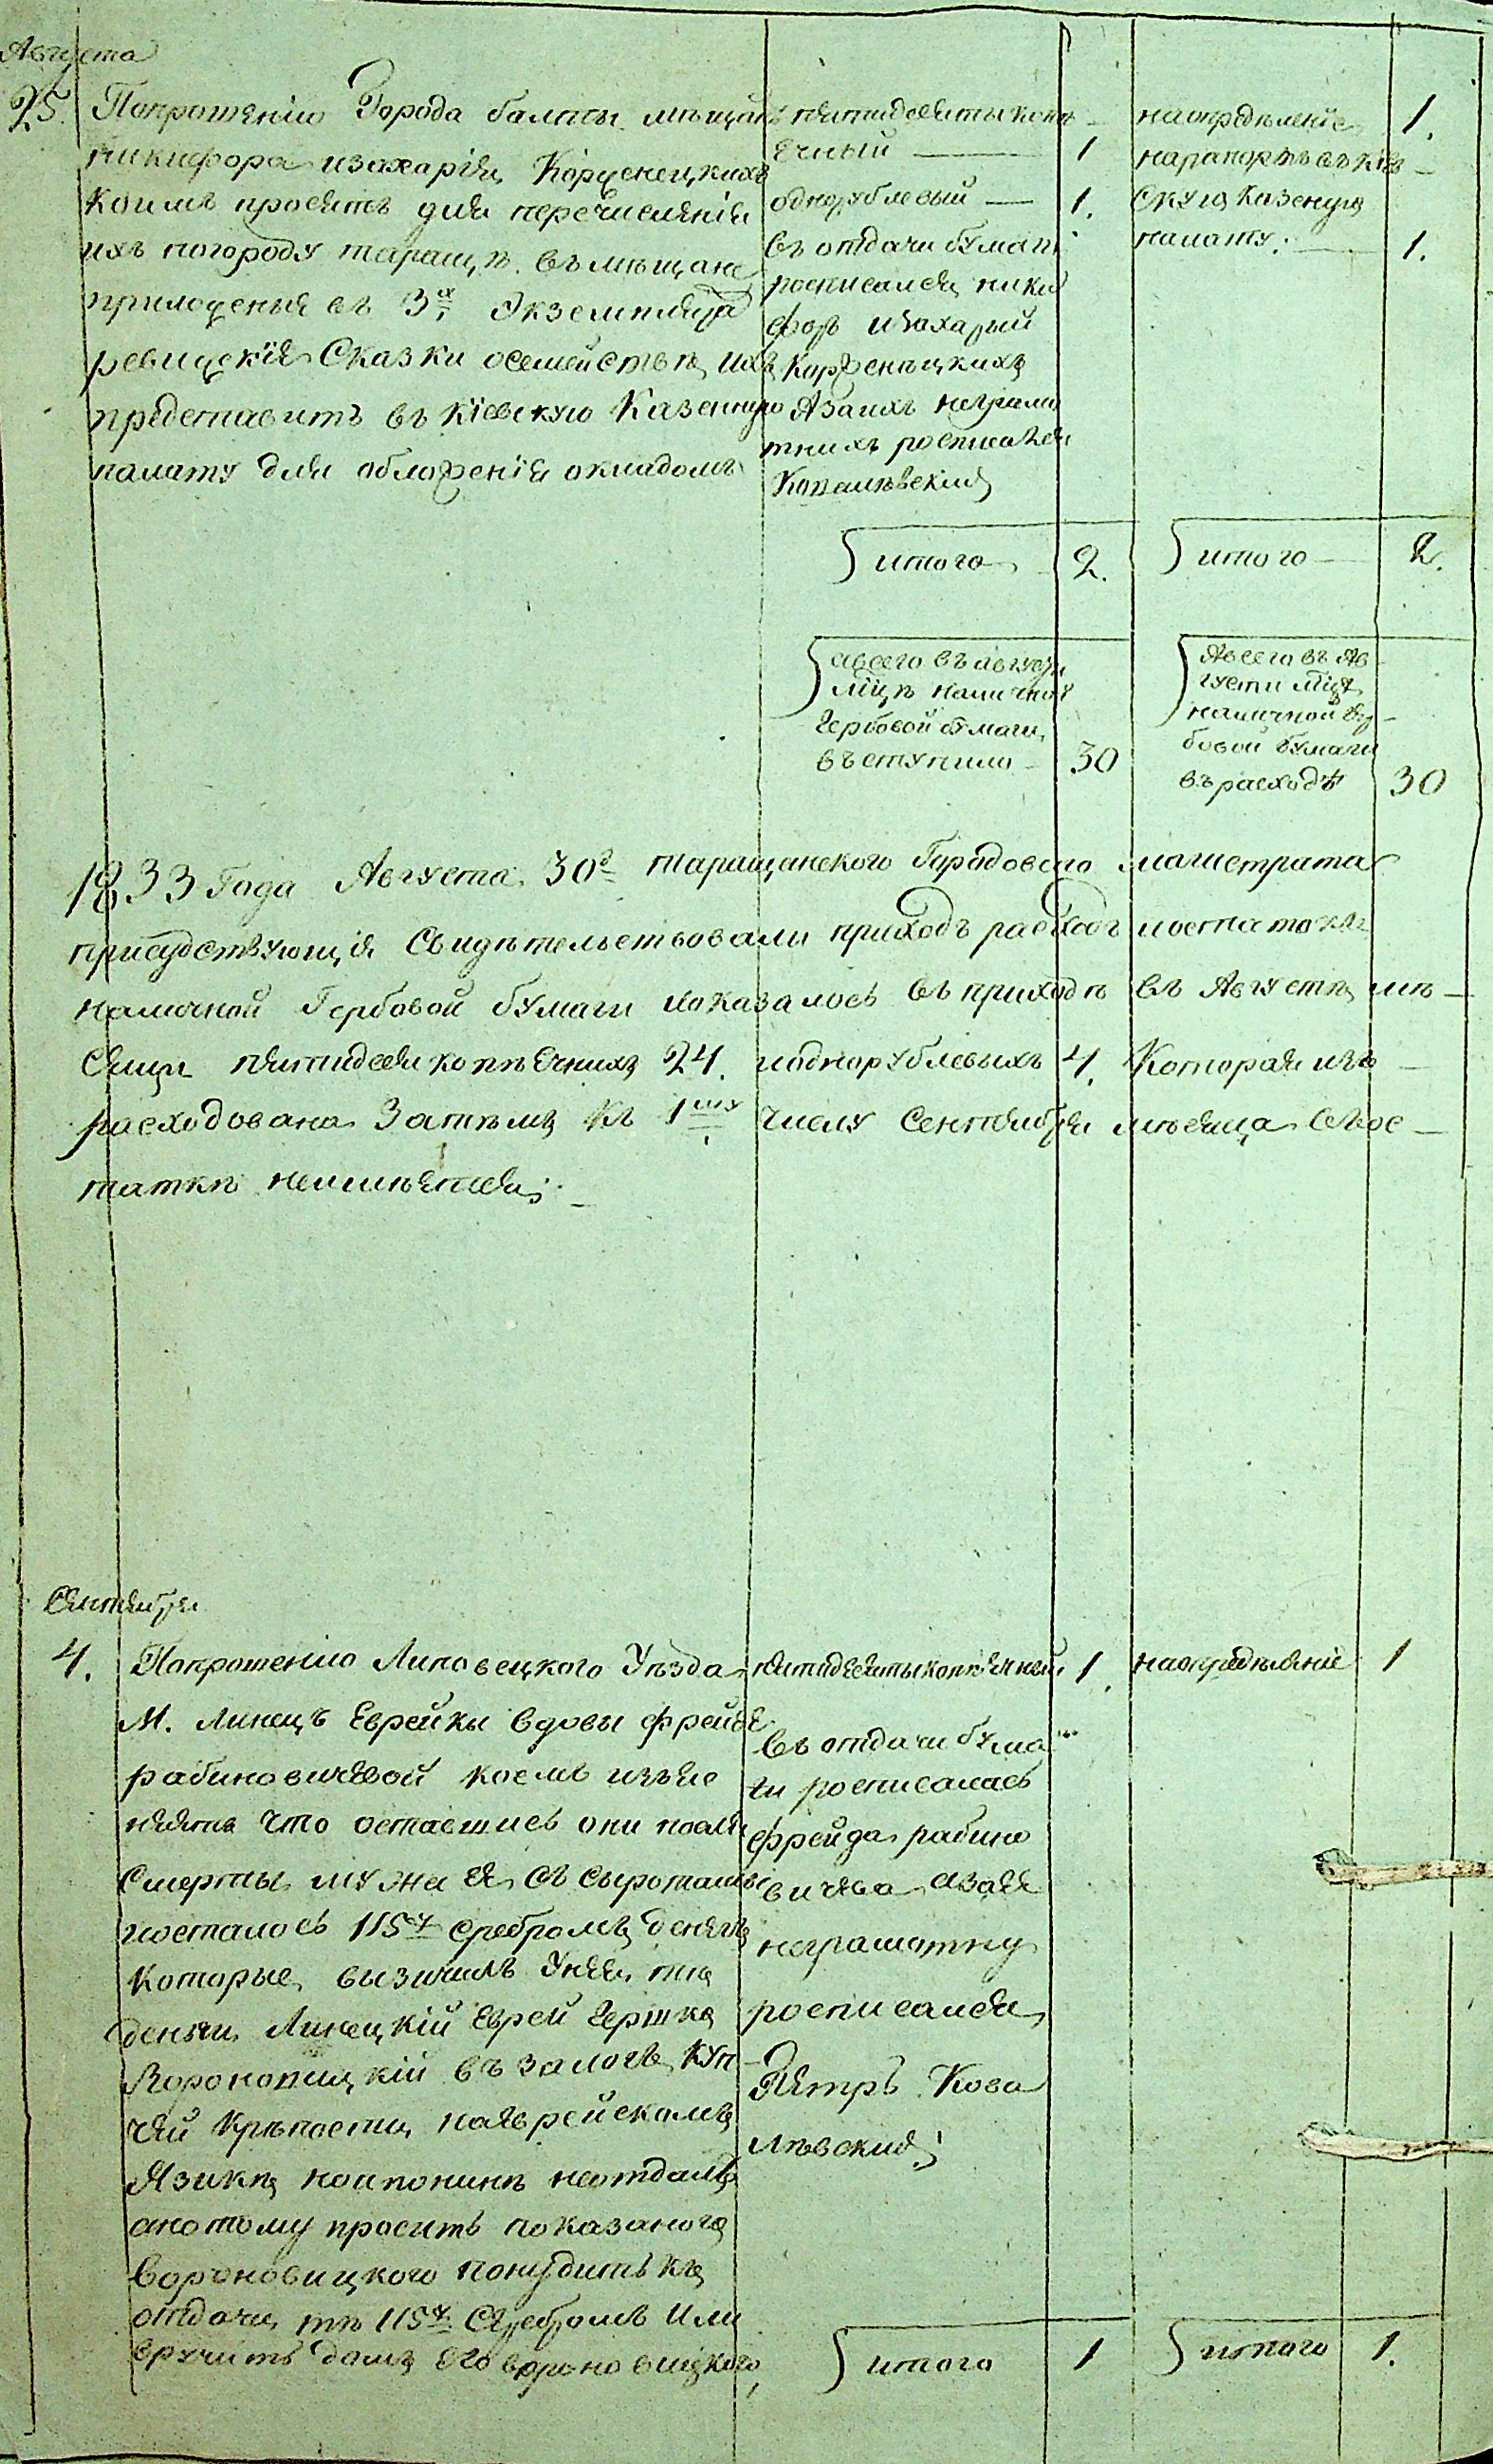 Августа
25. Попрошенію Города балты мѣщанъ
никифора изахарія Корженецкихъ
коимъ просятъ для перечисленія
ихъ погороду таращѣ въ мѣщане
приложеныя въ 3х Экземпляра
ревизскія Сказки осемействѣ ихъ
представить въ Кіевскую Казенную
палату для обложенія окладомъ
пятидесятыкопѣ
ечный — 1
однорублевый — 1.
въ отдачи бумаги
росписался ники
форъ изахарый
Корженѣцкихъ
Азаихъ неграмо
тнихъ росписался
Ковалѣвскій
наопредѣленіе 1.
нарапортъ въ кіев
скую казеную
палату. — 1.
итого 2.
итого — 2.
авсего въ августѣ
мцѣ наличной
гербовой бумаги
въступило 30
Авсего въ Ав
густѣ мцѣ
наличной гер
бовой бумаги
въ расходѣ 30
1833 Года Августа 30г таращанского Городового магистрата
присудствующія Свидѣтельствовали приходъ расходъ иостатокъ
наличной Гербовой бумаги иоказалось въ приходѣ въ Августѣ мѣ
сяци пятидесякопѣечнихъ 24. иоднорублевыхъ 4. Которая изъ
расходована Затѣмъ Къ 1му числу Сентября мѣсяца въос
таткѣ неимѣется;
Сентября
4. Попрошенію Липовецкого Уѣзда
М. Линецъ Еврейки вдовы фрейде
рабиновичевой коемъ изъяс
няетъ что оставшись они после
Смерты мужа ея Съ Сыротамы
иосталось 115р Сребромъ денегъ
которые вызичилъ Унея тие
деньги Линецкій Еврей Гершко
Вороновицкій въ залогъ куп
чей Крѣпости наеврейскомъ
Языкѣ ноипонинѣ неотдалъ
апотому проситъ показаного
Вороновицкого понудить къ
отдачи тѣ 115р. Серебромъ Или
вручить домъ его вороновицкого,
пятидесятыкопѣечный 1.
въ отдачи бума
ги росписалась
фрейда рабино
вичева азаея
неграмотну
росписался
Петръ Кова
лѣвскій;
наопредѣленіе 1
итого 1
итого 1.